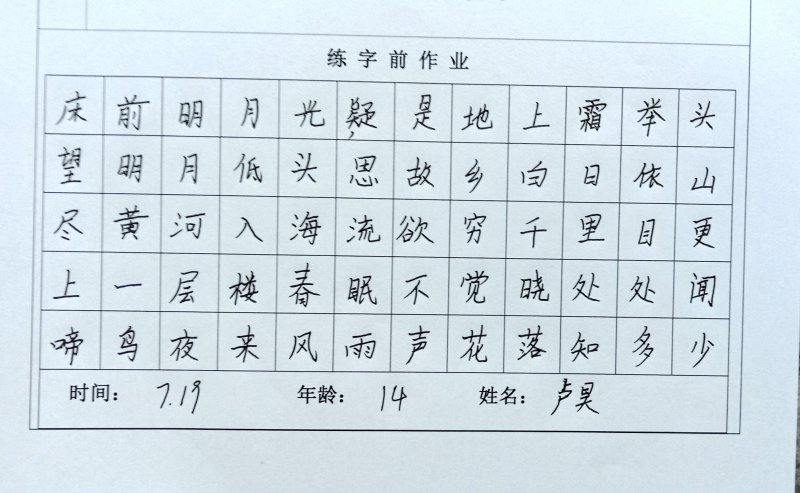 练字前作业
床前明月光疑是地上霜举头
望明月低头思故乡白日依山
尽黄河入海流欲穷千里目更
上一层楼春眠不觉晓处处闻
啼鸟夜来风雨声花落知多少
时间： 7.19 年龄： 14 姓名： 卢昊